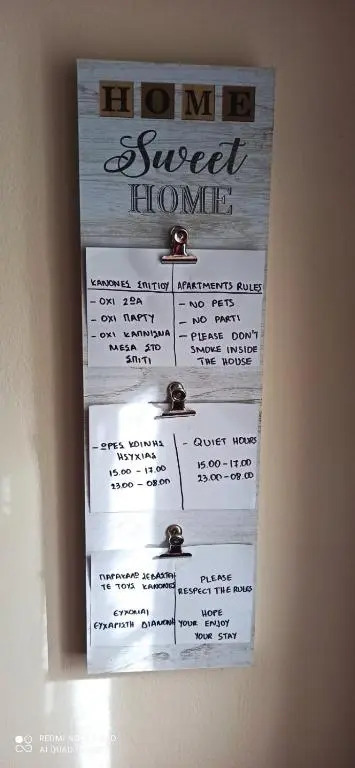 HOME
Sweet
HOME
ΚΑΝΟΝΕΣ ΣΠΙΤΙΟΥ
- ΟΧΙ ΖΩΑ
- ΟΧΙ ΠΑΡΤΥ
- ΟΧΙ ΚΑΠΝΙΣΜΑ
ΜΕΣΑ ΣΤΟ
ΣΠΙΤΙ
APARTMENTS RULES
- NO PETS
- NO PARTI
- PLEASE DON'T
SMOKE INSIDE
THE HOUSE
- ΩΡΕΣ ΚΟΙΝΗΣ
ΗΣΥΧΙΑΣ
15.00 - 17.00
23.00 - 08.00
- QUIET HOURS
15.00 - 17.00
23.00 - 08.00
ΠΑΡΑΚΑΛΩ ΣΕΒΑΣΤΗ
ΤΕ ΤΟΥΣ ΚΑΝΟΝΕΣ
ΕΥΧΟΜΑΙ
ΕΥΧΑΡΙΣΤΗ ΔΙΑΜΟΝΗ
PLEASE
RESPECT THE RULES
HOPE
YOUR ENJOY
YOUR STAY
REDMI
AI QUAD